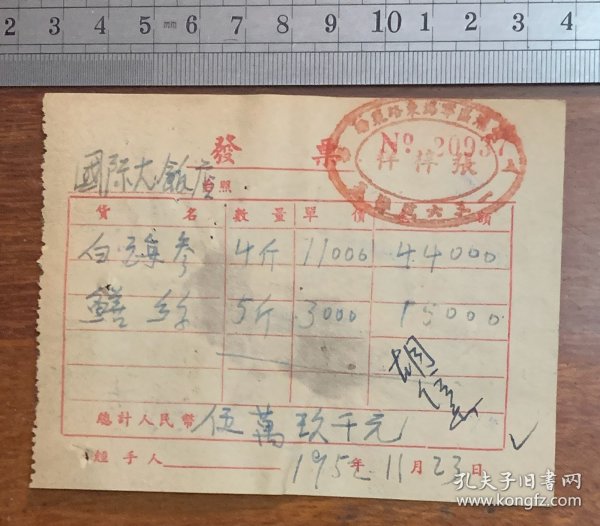 2 3 4 5 6 7 8 9 10 1 2 3 4
發票
No 20937
張梓梓
國際大飯店 台照
貨名 數量 單價 額
白 參 4斤 11000 44000
鱔絲 5斤 3000 15000
總計人民幣 伍萬玖千元
經手人 195 年 11月23日
孔夫子旧书网
www.kongfz.com